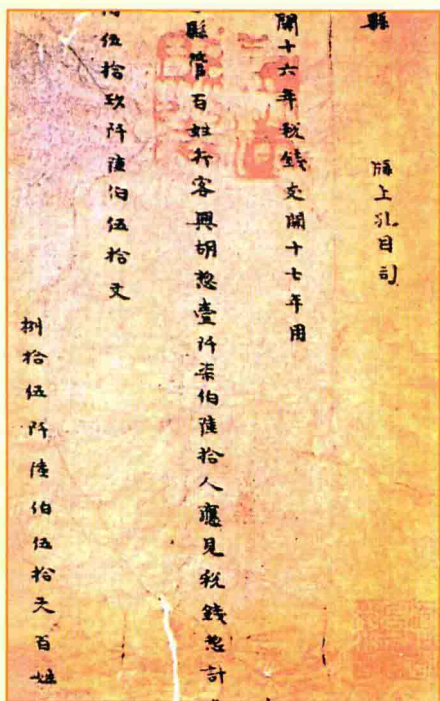 縣
牒上孔目司
開十六年稅錢支開十七年用
縣管百姓行客興胡惣壹阡柒伯陸拾人應見稅錢惣計
伍拾玖阡陸伯伍拾文
捌拾伍阡陸伯伍拾文百姓